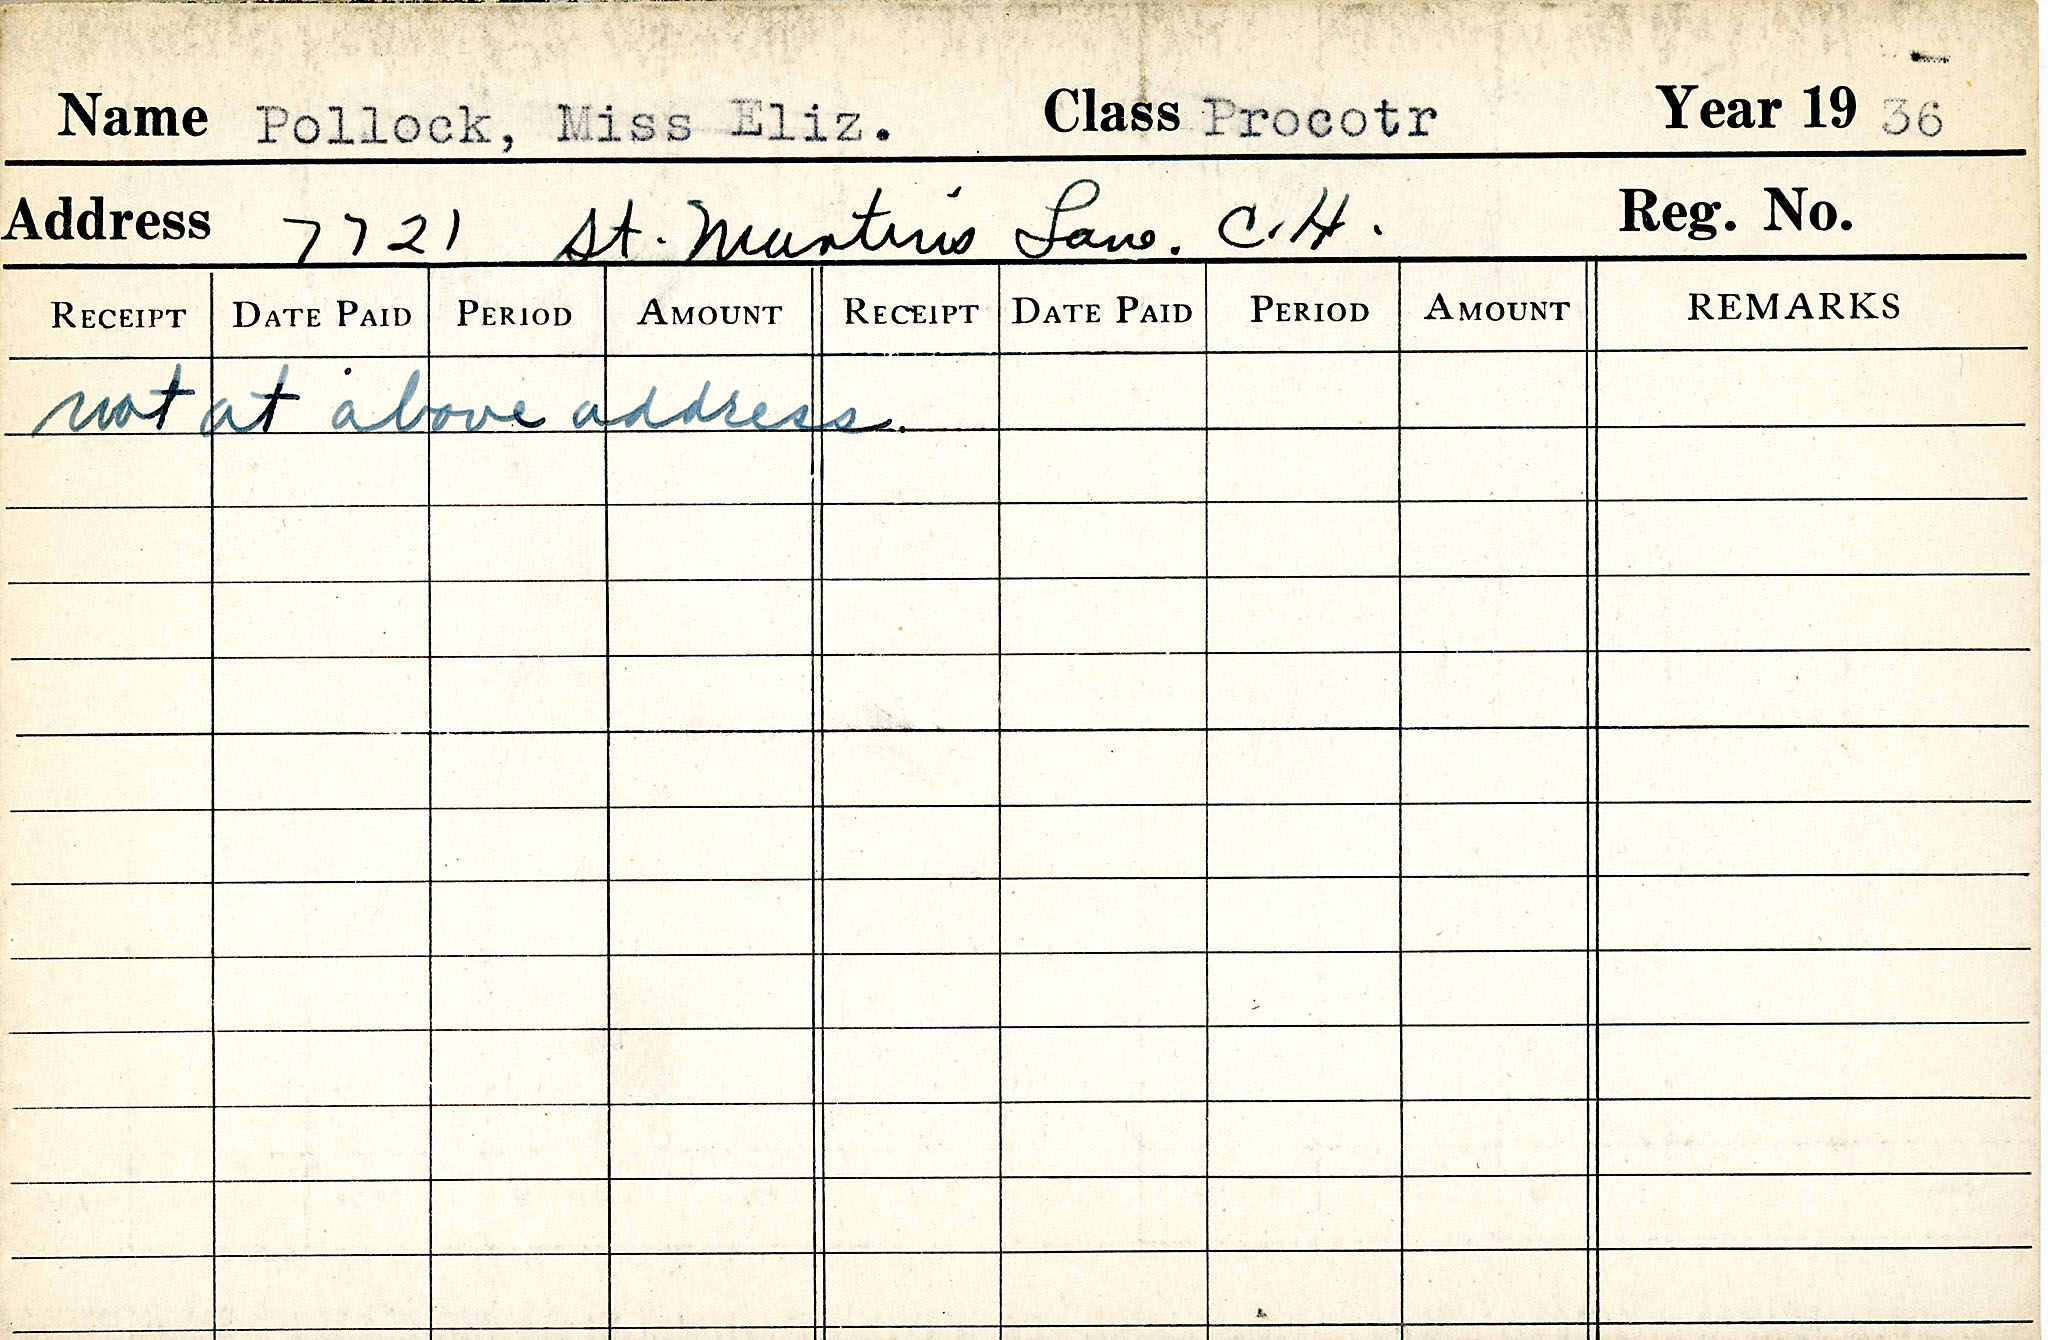 Name Pollock, Miss Eliz. Class Procotr Year 19 36
Address 7721 St. Martin's Lane. C.H. Reg. No.
RECEIPT DATE PAID PERIOD AMOUNT RECEIPT DATE PAID PERIOD AMOUNT REMARKS
not at above address.